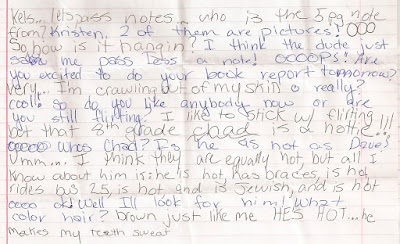 Kels... lets pass notes... who is the 5pg note
from? Kristen, 2 of them are pictures! OOO
So how is it hangin? I think the dude just
me pass Less a note! OCOOPS! Are
you excited to do your book report tomorrow?
very... I'm crawling out of my skin o really?
cool! so do you like anybody now or are
you still flirting? I like to stick w/ flirting
but that 8th grade chad is a hottie...!!!
ooooo Whos Chad? Is he as hot as Dave?
Umm... I think they are equally hot, but all I
know about him is: he is hot, has braces, is hot
rides bus 25, is hot and is Jewish, and is hot
oooo ok Well I'll look for him! What
color hair? brown just like me HES HOT...he
makes my teeth sweat